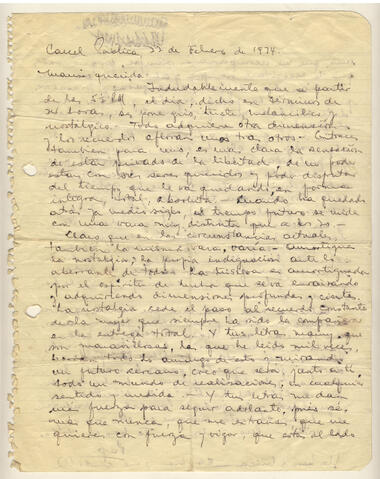 Carcel Pública 22 de Febrero de 1974.
querida:
Indudablemente que a partir
de las 5½ PM, el día, dicho en términos de
24 horas, se pone gris, triste, melancólico y
nostálgico. Todo adquiere otra dimensión
los recuerdos afloran unos tras otros. Entonces
para uno, es más clara la sensación
de estar privado de la libertad, de no poder
estar con los seres queridos y poder disponer
del tiempo que le va quedando en forma
integra, total, absoluta. Cuando ha quedado
atrás ya medio siglo, el tiempo futuro se mide
con una vara muy distinta que a los 20.-
Claro que en las circunstancias actuales
también la misma vara varía - amortigua
la nostalgia, la propia indignación ante lo
aberrante de todo. La tristeza es amortiguada
por el espíritu de lucha que se va enraizando
y adquiriendo dimensiones profundas y
La nostalgia cede el paso al recuerdo constante
de la mujer que siempre ha sido la compañera
en la entrega total. Y tus letras,
son maravillosas, las que he leído mil veces
todo lo amargo de esto y mirando
un futuro cercano, creo que será, junto a ti
todo un mundo de realizaciones, en cualquier
sentido y medida. - Y tus letras me dan
más fuerzas para seguir adelante, pues sé,
más que nunca, que me extrañas, que me
quieres con fuerza y vigor, que estás al lado